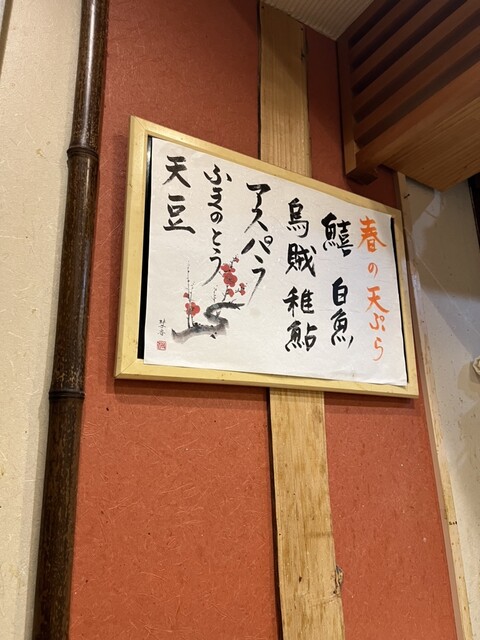 春の天ぷら
鱚 白魚
烏賊 稚鮎
アスパラ
ふきのとう
天豆